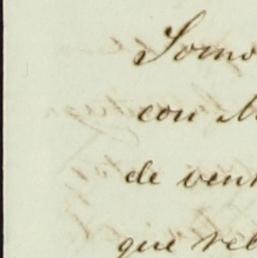 Somo
con M
de vent
que rel